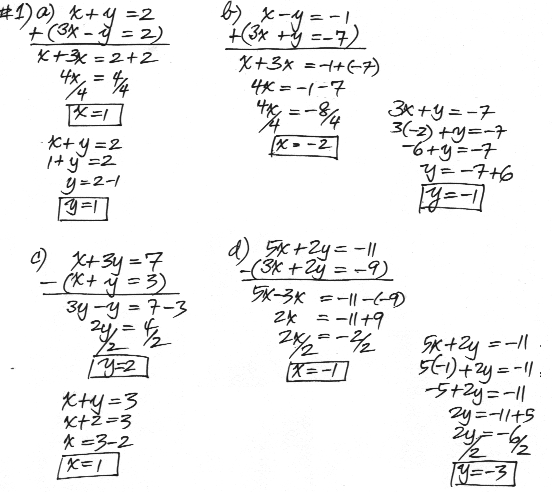 #1) a) x + y = 2
+ (3x - y = 2)
x + 3x = 2 + 2
4x/4 = 4/4
x = 1
x + y = 2
1 + y = 2
y = 2 - 1
y = 1
b) x - y = -1
+ (3x + y = -7)
x + 3x = -1 + (-7)
4x = -1 - 7
4x/4 = -8/4
x = -2
3x + y = -7
3(-2) + y = -7
-6 + y = -7
y = -7 + 6
y = -1
c) x + 3y = 7
- (x + y = 3)
3y - y = 7 - 3
2y/2 = 4/2
y = 2
x + y = 3
x + 2 = 3
x = 3 - 2
x = 1
d) 5x + 2y = -11
- (3x + 2y = -9)
5x - 3x = -11 - (-9)
2x = -11 + 9
2x/2 = -2/2
x = -1
5x + 2y = -11
5(-1) + 2y = -11
-5 + 2y = -11
2y = -11 + 5
2y/2 = -6/2
y = -3